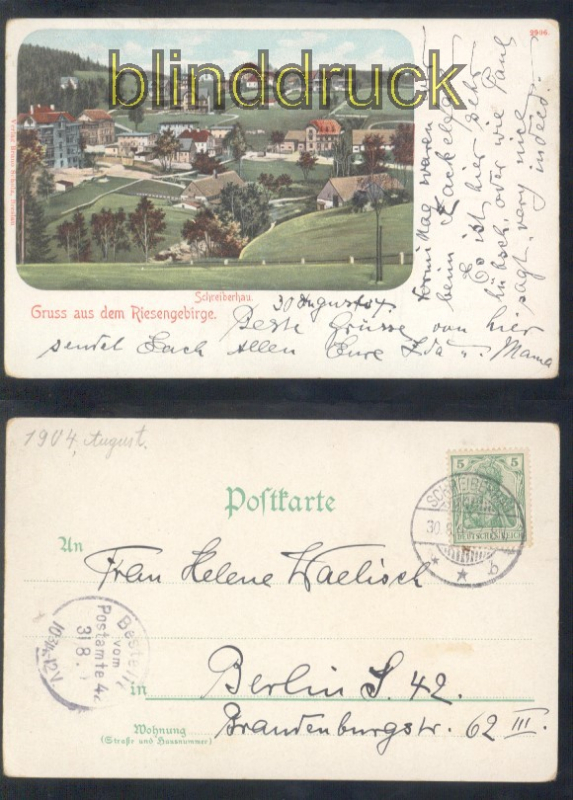 blinddruck
Schreiberhau.
Gruss aus dem Riesengebirge.
30 August 04.
Beste Grüsse von hier
sendet Euch Allen Eure Ida u. Mama
Vormittag waren
beim Zackelfall
Es ist hier sehr
hübsch, oder wie Paul
sagt, very nice
indeed.
1904, August.
Postkarte
5 5
DEUTSCHES REICH
SCHREIBERHAU
30.8.
b
An
Frau Helene Waelisch
Bestellt
vom
Postamte 42
31.8.
in
Berlin S. 42.
Wohnung
(Straße und Hausnummer)
Brandenburgstr. 62 III.